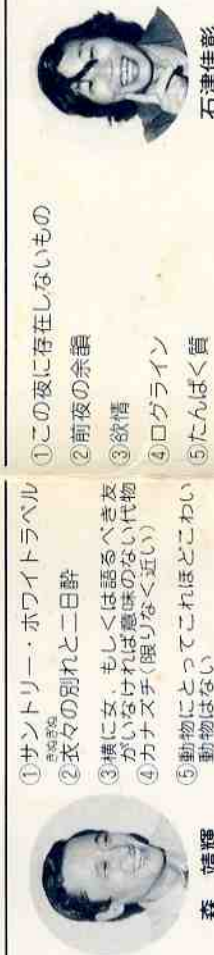 ①サントリー・ホワイトラベル
きぬぎぬ
②衣々の別れと二日酔
③横に女、もしくは語るべき友
がいなければ意味のない代物
④カナヅチ(限りなく近い)
⑤動物にとってこれほどこわい
動物はない
森 靖輝
①この夜に存在しないもの
②前夜の余韻
③欲情
④ログライン
⑤たんぱく質
石津佳彰